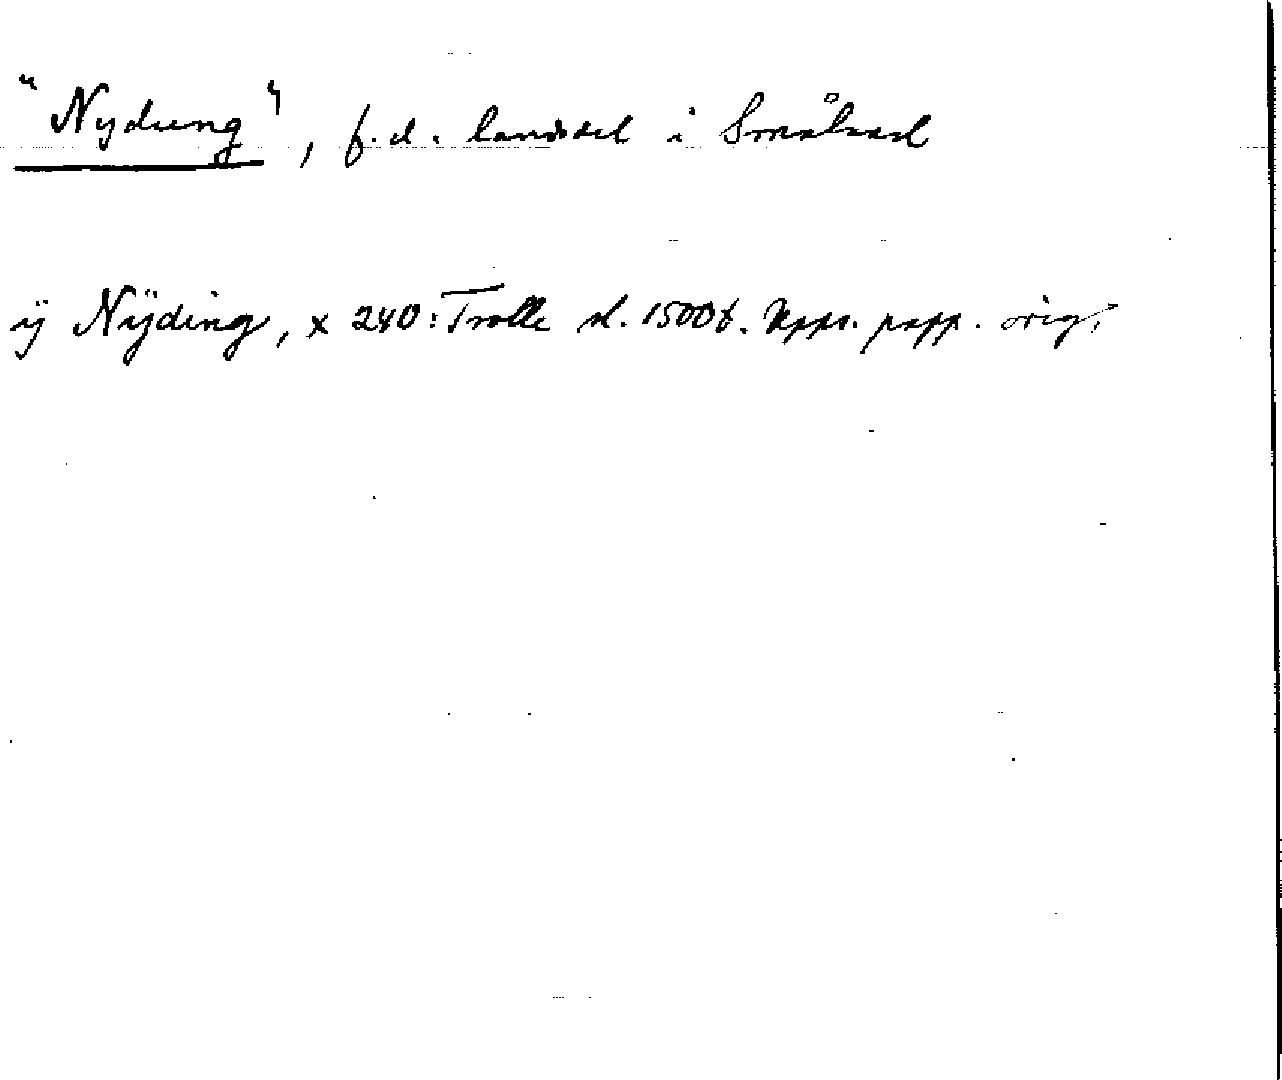 "Nydung", f.d. landsdel i Småland
ÿ Nÿding, x 240: Trolle sl. 1500t. Upps. papp. orig.